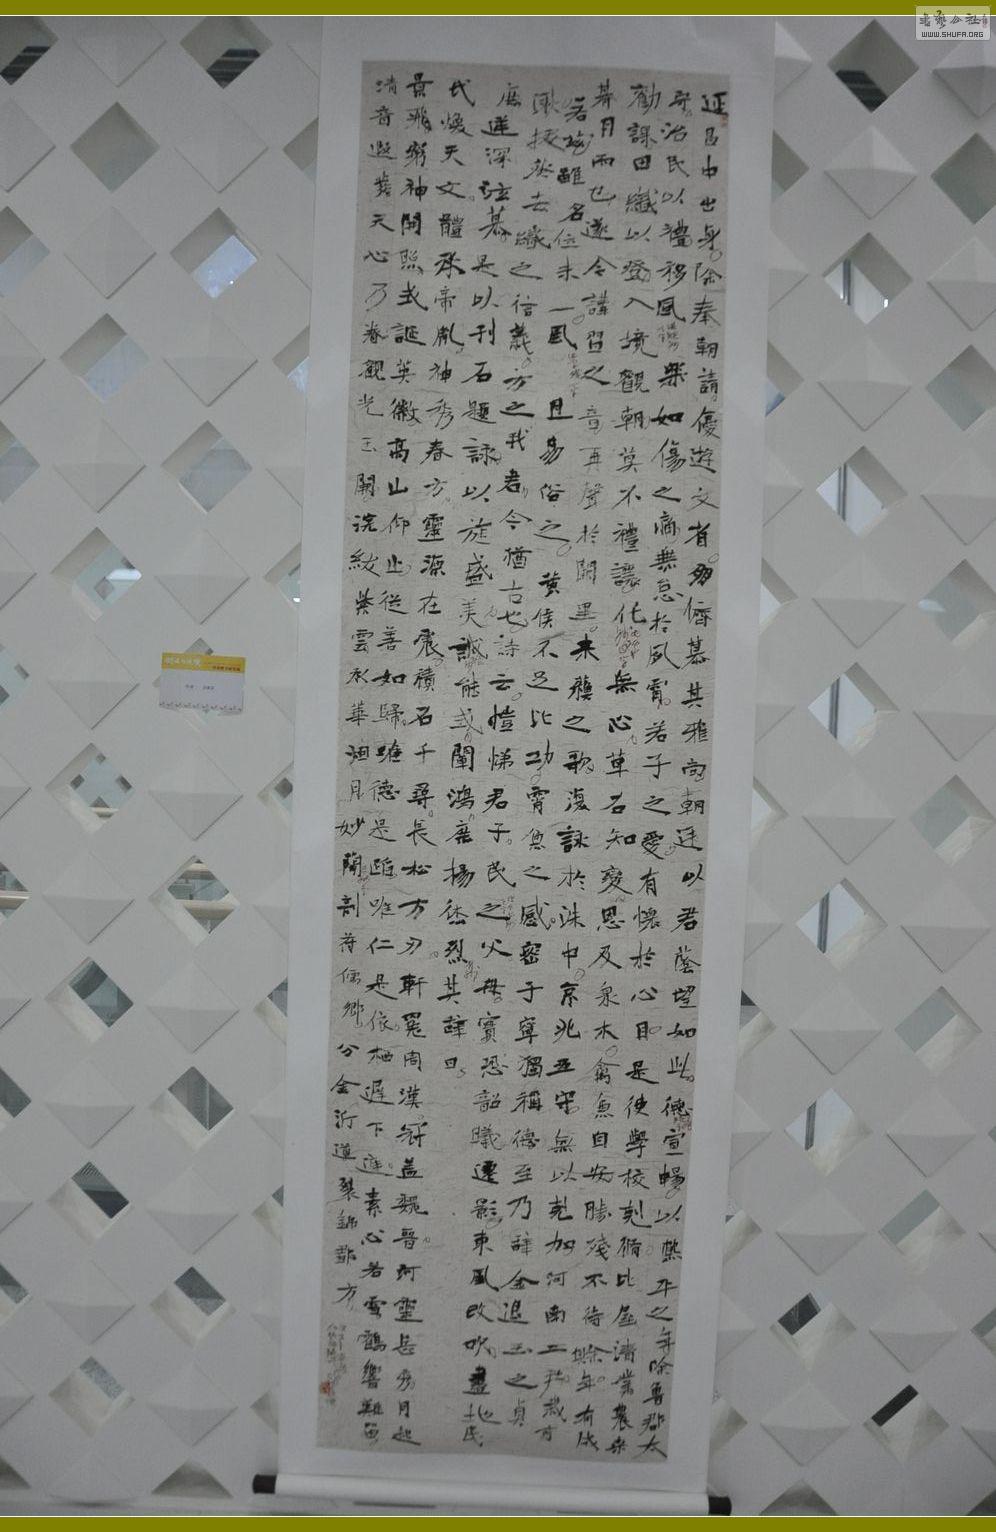 延昌中出身除奉朝請優遊文省朋儕慕其雅尚朝廷以君蔭望如此德宣暢以熙平之年除魯郡太
守治民以禮移風樂如傷之痛無怠於夙宵若子之愛有懷於心目是使學校剋脩比屋清業農桑
勸課田織以登入境觀朝莫不禮讓化無心草石知變恩及泉木禽魚自安勝殘不待賒年有成
朞月而已遂令講習之音再聲於闕里來蘓之歌復詠於洙中京兆五守無以尅加河南二尹裁可
若茲雖名位未一風且易俗之黃侯不足比功霄魚之感密子寧獨稱德至乃辭金退玉之貞
耿拔葵去織之信義方之我君今猶古也詩云愷悌君子民之父母實恐韶曦遷影東風改吹盡地民
庶逆深泫慕是以刊石題詠以旌盛美誠能式闡鴻庶揚烋烈其辭曰
氏煥天文體承帝胤神秀春方靈源在震積石千尋長松万刃軒冕周漢冠蓋魏晉河靈岳秀月起
景飛窮神開照式誕英徽高山仰止從善如歸唯德是蹈唯仁是依栖遲下庭素心若雪鶴響難留
清音遐發天心乃眷觀光玉闕浣紱紫雲承華烟月妙簡剖苻儒鄉分金沂道裂錦鄒方
書藝公社
WWW.SHUFA.ORG